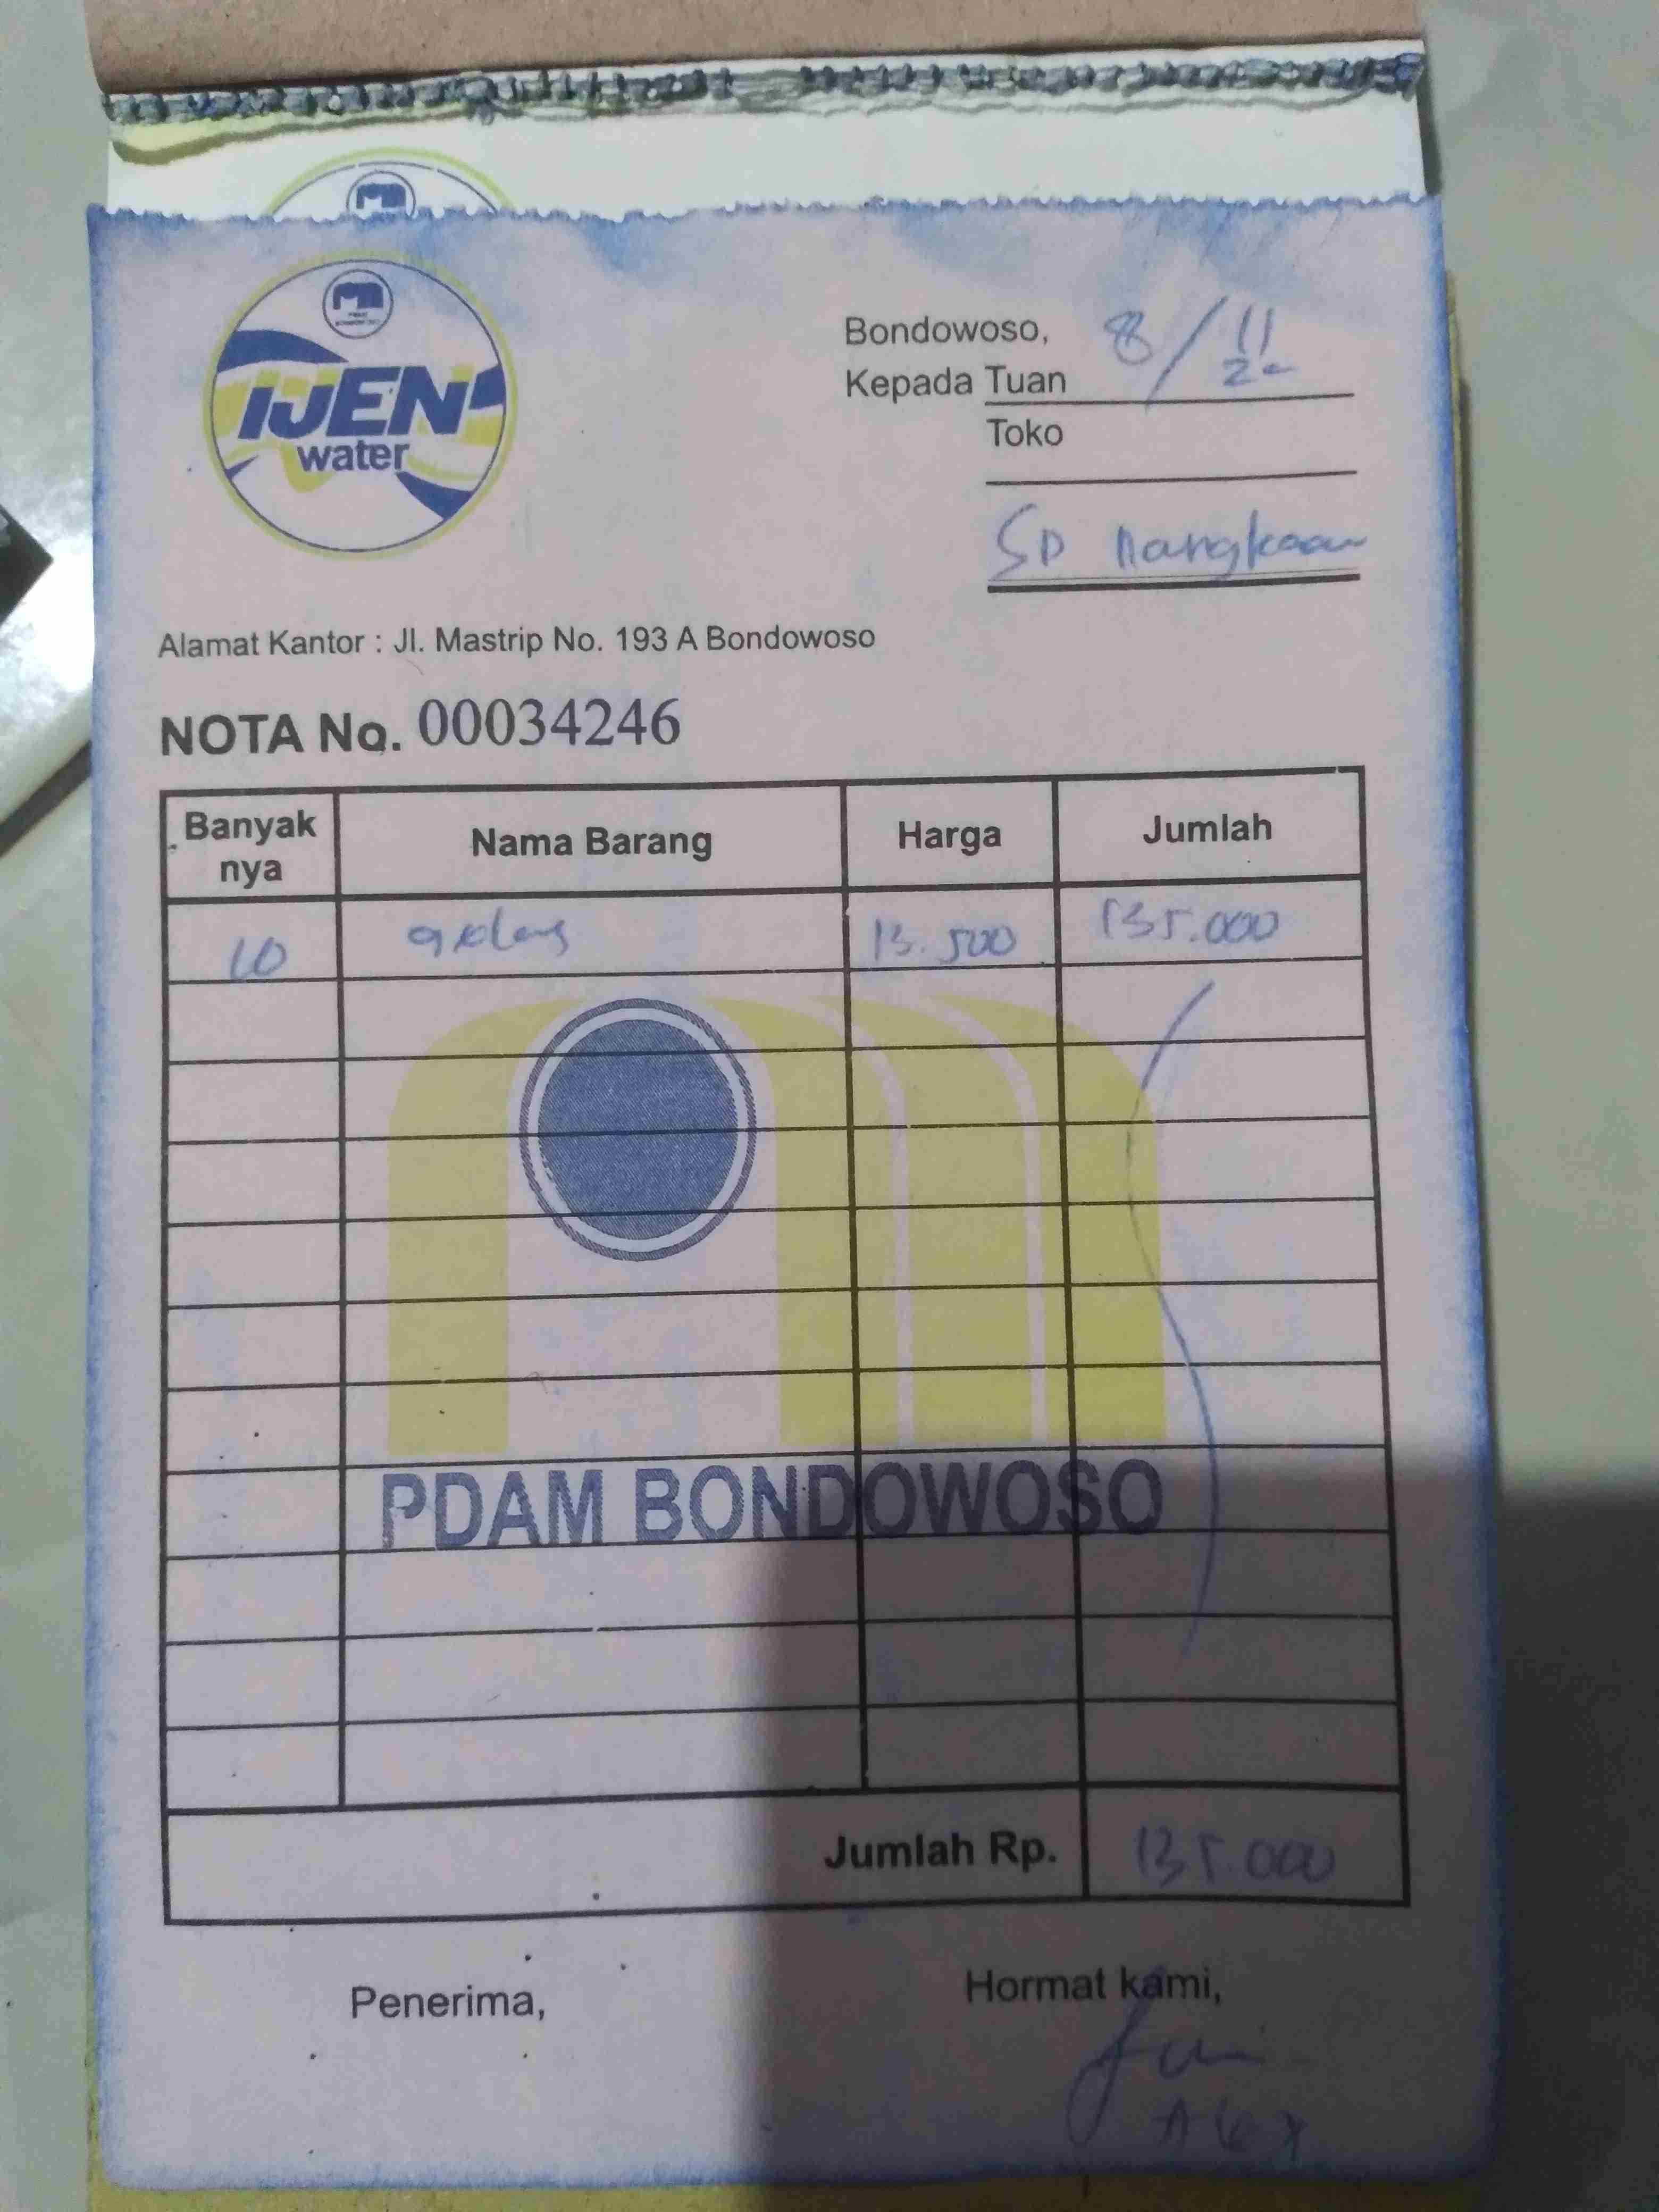 IJEN
water
Bondowoso, 8/11
22
Kepada Tuan
Toko
SD Nangkaan
Alamat Kantor : Jl. Mastrip No. 193 A Bondowoso
NOTA No. 00034246
Banyak nya Nama Barang Harga Jumlah
10 galon 13.500 135.000
PDAM BONDOWOSO
Jumlah Rp. 135.000
Penerima, Hormat kami,